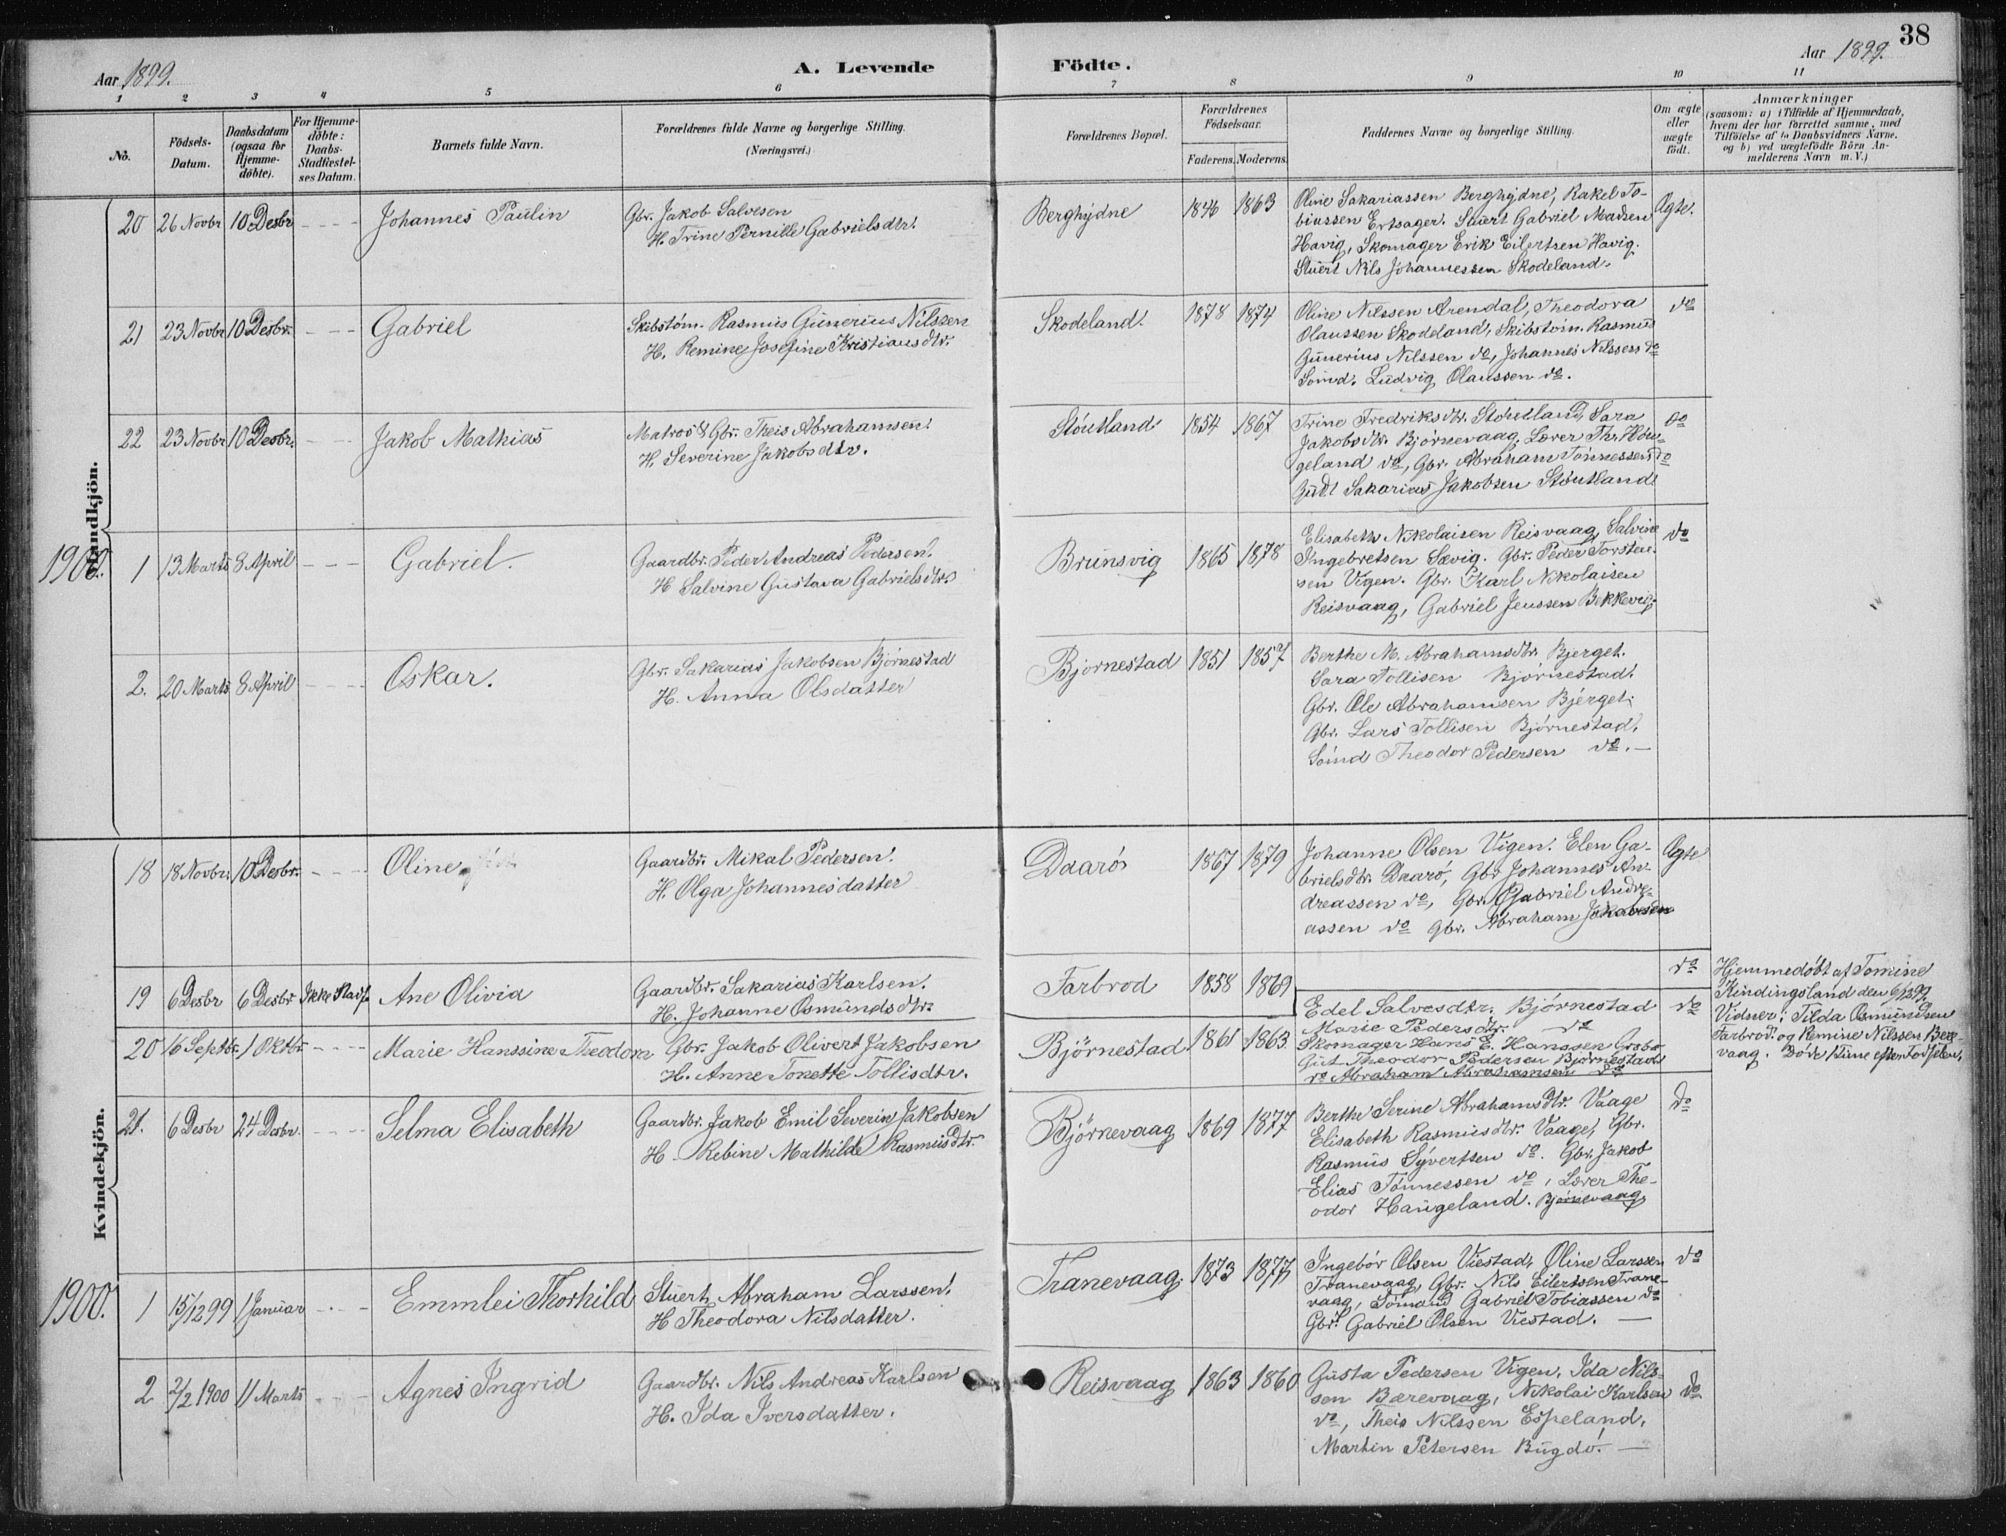 38
Aar 1899.
A. Levende Födte.
Aar 1899.
1 2 3 4 5 6 7 8 9 10 11
No.
Födsels-
Datum.
Daabsdatum
(ogsaa for
Hjemme-
döbte).
For Hjemme-
döbte:
Daabs-
Stadfæstel-
ses Datum.
Barnets fulde Navn.
Forældrenes fulde Navne og borgerlige Stilling.
(Næringsvei.)
Forældrenes Bopæl.
Forældrenes
Födselsaar.
Faderens. Moderens.
Faddernes Navne og borgerlige Stilling.
Om ægte
eller
uægte
födt.
Anmærkninger
(saasom: a) i Tilfælde af Hjemmedaab,
hvem der har forrettet samme, med
Tilföielse af to Daabsvidners Navne,
og b) ved uægtefödte Börn An-
melderens Navn m. V.)
Mandkjön.
20 26 Novbr 10 Desbr Johannes Paulin
Gbr. Jakob Salvesen
H. Trine Pernille Gabrielsdtr.
Berghydne 1846 1863
Oline Sakariassen Berghydne, Rakel To-
biassen Ertsager. Stuert Gabriel Madsen
Havig, Skomager Erik Eilertsen Havig.
Stuert Nils Johannessen Skodeland.
Ægte.
21 23 Novbr 10 Desbr. Gabriel
Skibstøm. Rasmus Gunerius Nilssen
H. Remine Josefine Kristiansdtr.
Skodeland. 1878 1874
Oline Nilssen Arendal, Theodora
Olaussen Skodeland, Skibstøm. Rasmus
Gunerius Nilssen do, Johannes Nilssen do
Sømd. Ludvig Olaussen do.
do
22 23 Novbr 10 Desbr. Jakob Mathias
Matros & Gbr. Theis Abrahamsen.
H. Severine Jakobsdtr.
Støutland 1854 1867
Trine Fredriksdtr. Støutland, Sara
Jakobsdtr. Bjørnevaag, Lærer Th. Høu-
geland do, Gbr. Abraham Tønnessen, do
Sakarias Jakobsen Støutland
do
1900. 1 13 Marts 8 April Gabriel.
Gaardbr. Peder Andreas Pedersen.
H Salvine Gustava Gabrielsdtr.
Brunsvig 1865 1878
Elisabeth Nikolaisen Reisvaag, Salvine
Ingebretsen Sævig. Gbr. Peder Torsten-
sen Vigen. Gbr. Karl Nikolaisen
Reisvaag, Gabriel Jenssen Bekkevig.
do
2. 20 Marts 8 April Oskar.
Gbr. Sakarias Jakobsen Bjørnestad
H. Anna Olsdatter
Bjørnestad 1851 1857
Berthe M. Abrahamsdtr. Bjerget.
Sara Tollisen Bjørnestad.
Gbr. Ole Abrahamsen Bjerget.
Gbr. Lars Tollisen Bjørnestad.
Sømd Theodor Pedersen do. —
Kvindekjön.
18 18 Novbr. 10 Desbr. Oline
Gaardbr. Mikal Pedersen.
H. Olga Johannesdatter
Daarø 1867 1879
Johanne Olsen Vigen. Elen Ga-
brielsdtr. Daarø, Gbr Johannes An-
dreassen do, Gbr. Gabriel Andre-
assen do Gbr. Abraham Jakobsen
Ægte
19 6 Desbr 6 Desbr Ikke Stadf. Ane Olivia
Gaardbr. Sakarias Karlsen.
H. Johanne Osmundsdtr.
Farbrod 1858 1869
do
Hjemmedøbt af Tomine
Kindingsland den 6/12 99
Vidner: Tilda Osmundsen
Farbrod. og Remine Nilssen Bere-
vaag. Døde 1 Time efter Fødselen.
20 16 Septbr. 1 Oktbr. Marie Hanssine Theodora
Gbr. Jakob Olivert Jakobsen
H. Anne Tonette Tollisdtr.
Bjørnestad. 1861 1863
Edel Salvesdtr. Bjørnestad
Marie Pedersdtr. do
Skomager Hans E. Hanssen Grobo
Gut Theodor Pedersen Bjørnestad
do Abraham Abrahamsen do
do
21. 6 Desbr 24 Desbr. Selma Elisabeth
Gaardbr. Jakob Emil Severin Jakobsen
H. Rebine Mathilde Rasmusdtr.
Bjørnevaag 1869 1877
Berthe Serine Abrahamsdtr. Vaage
Elisabeth Rasmusdtr. Vaage, Gbr.
Rasmus Syvertsen do. Gbr. Jakob
Elias Tønnessen do, Lærer The-
odor Haugeland. Bjørnevaag
do
1900. 1 15/12 99 1 Januar Emmlei Thorhild
Stuert Abraham Larssen.
H Theodora Nilsdatter.
Tranevaag. 1873 1877
Ingebór Olsen Viestad, Oline Larssen
Tranevaag, Gbr. Nils Eilertsen Trane-
vaag, Sømand Gabriel Tobiassen do
Gbr. Gabriel Olsen Viestad. —
do
2 2/2 1900 11 Marts Agnes Ingrid
Gaardbr. Nils Andreas Karlsen
H. Ida Iversdatter.
Reisvaag 1863 1860
Gusta Pedersen Vigen, Ida Nils-
sen Bærevaag, Nikolai Karlsen
do, Theis Nilssen Espeland,
Martin Petersen Bugdø. —
do